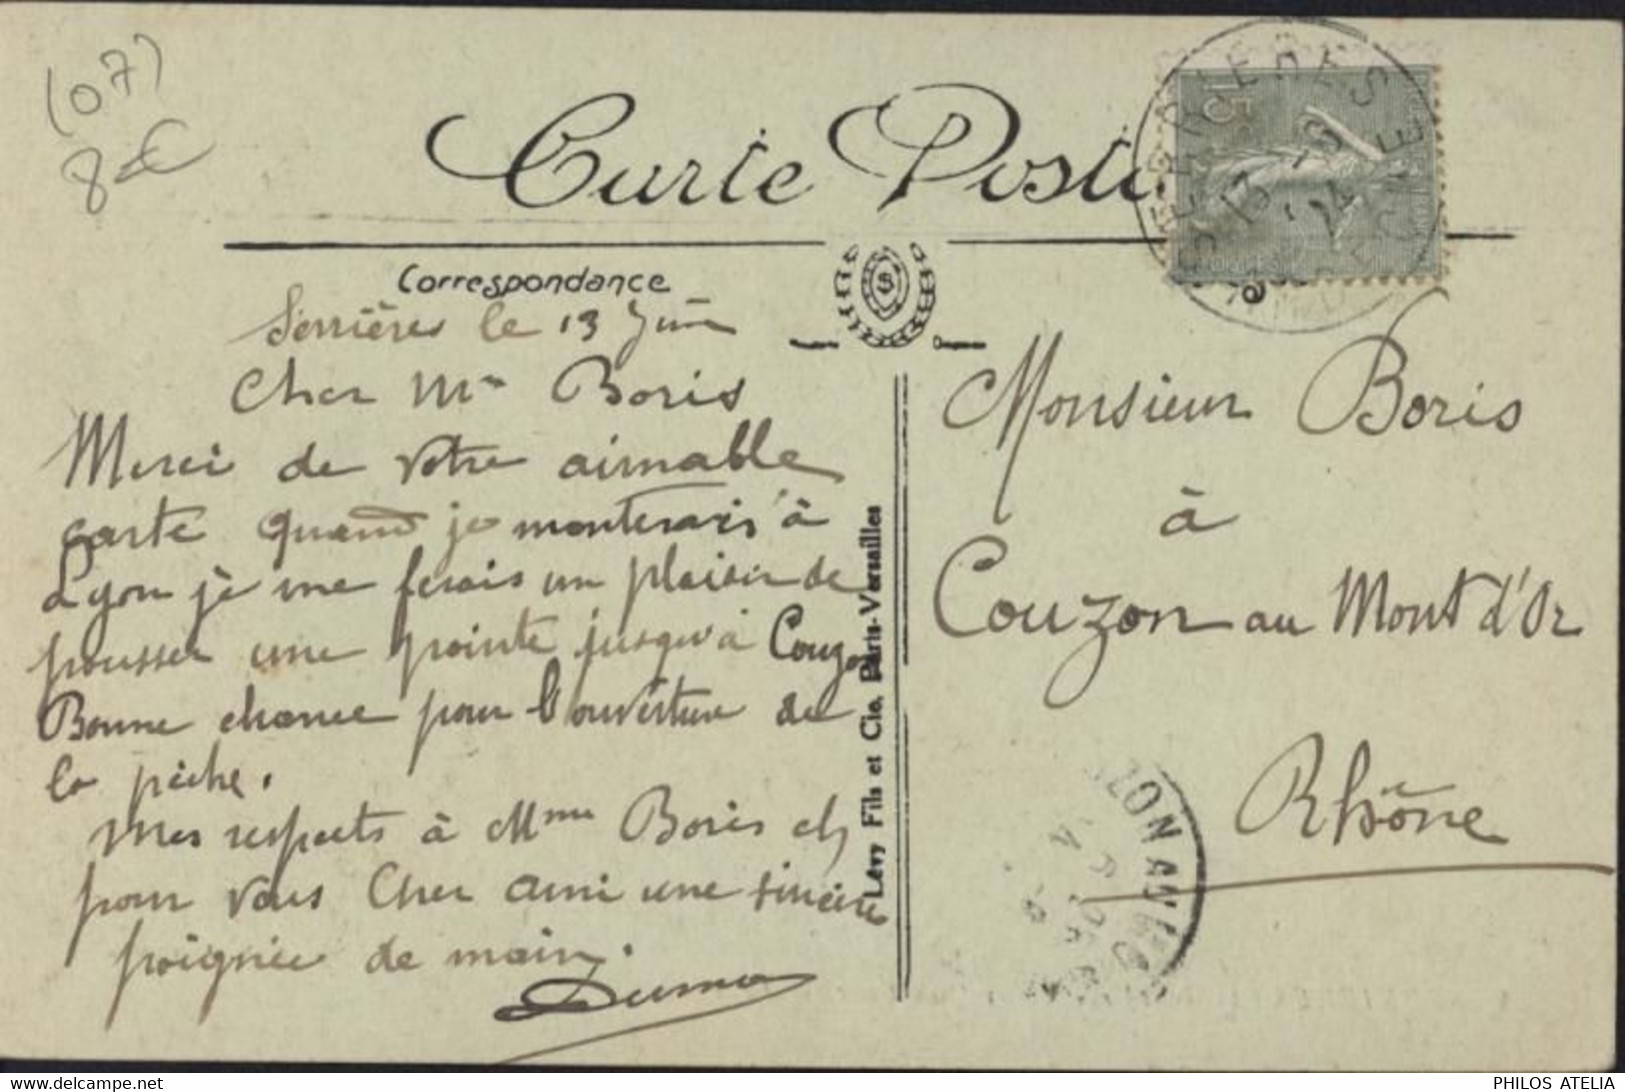 (07)
8€
Carte Postale
SERRIERES
13 - 6
24
ARDECHE
15c
Correspondance
Serrières le 13 Juin
Cher Mr Boris
Merci de votre aimable
carte quand je monterais à
Lyon je me ferais un plaisir de
pousser une pointe jusqu'à Couzon
Bonne chance pour l'ouverture de
la pêche.
Mes respects à Mme Boris et
pour vous Cher ami une sincère
poignée de main.
Lévy Fils et Cie, Paris-Versailles
Monsieur Boris
à
Couzon au Mont d'Or
Rhône
PHILOS ATELIA
www.delcampe.net